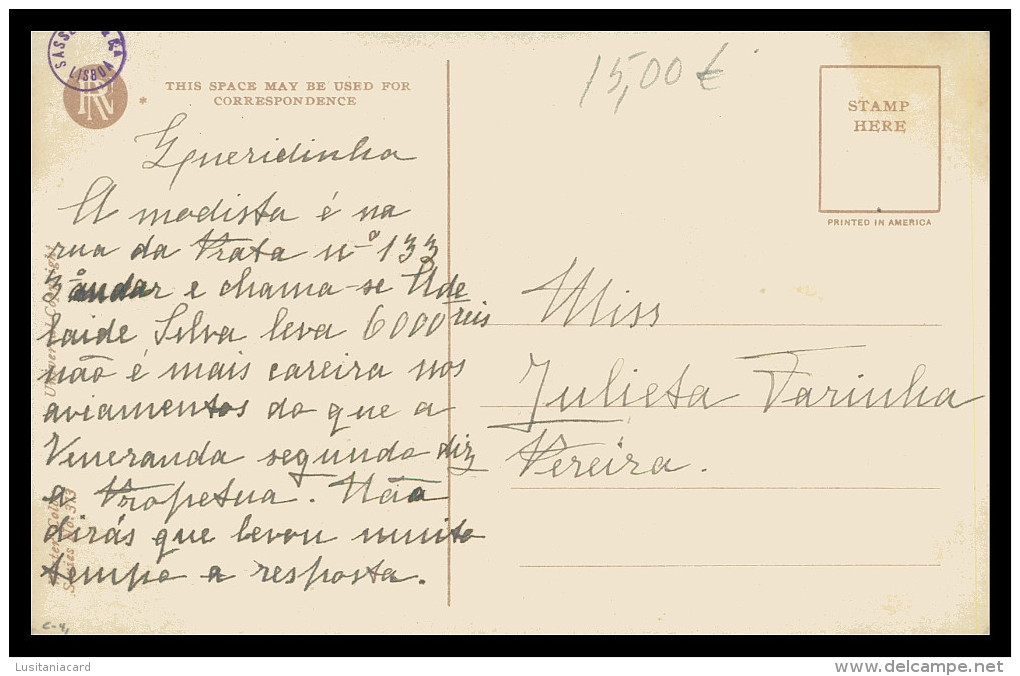 SASSE
LISBOA
RN
* THIS SPACE MAY BE USED FOR
CORRESPONDENCE
15,00 €
STAMP
HERE
PRINTED IN AMERICA
Queridinha
A modista é na
rua da Prata nº 133
3º andar e chama-se Ade
laide Silva leva 6000 réis
não é mais careira nos
aviamentos do que a
Veneranda segundo diz
a Propetua. Não
dirás que levou muito
tempo a resposta.
Miss
Julieta Farinha
Pereira.
Universal Copyright
Series No. 313
C-4,
Lusitaniacard
www.delcampe.net